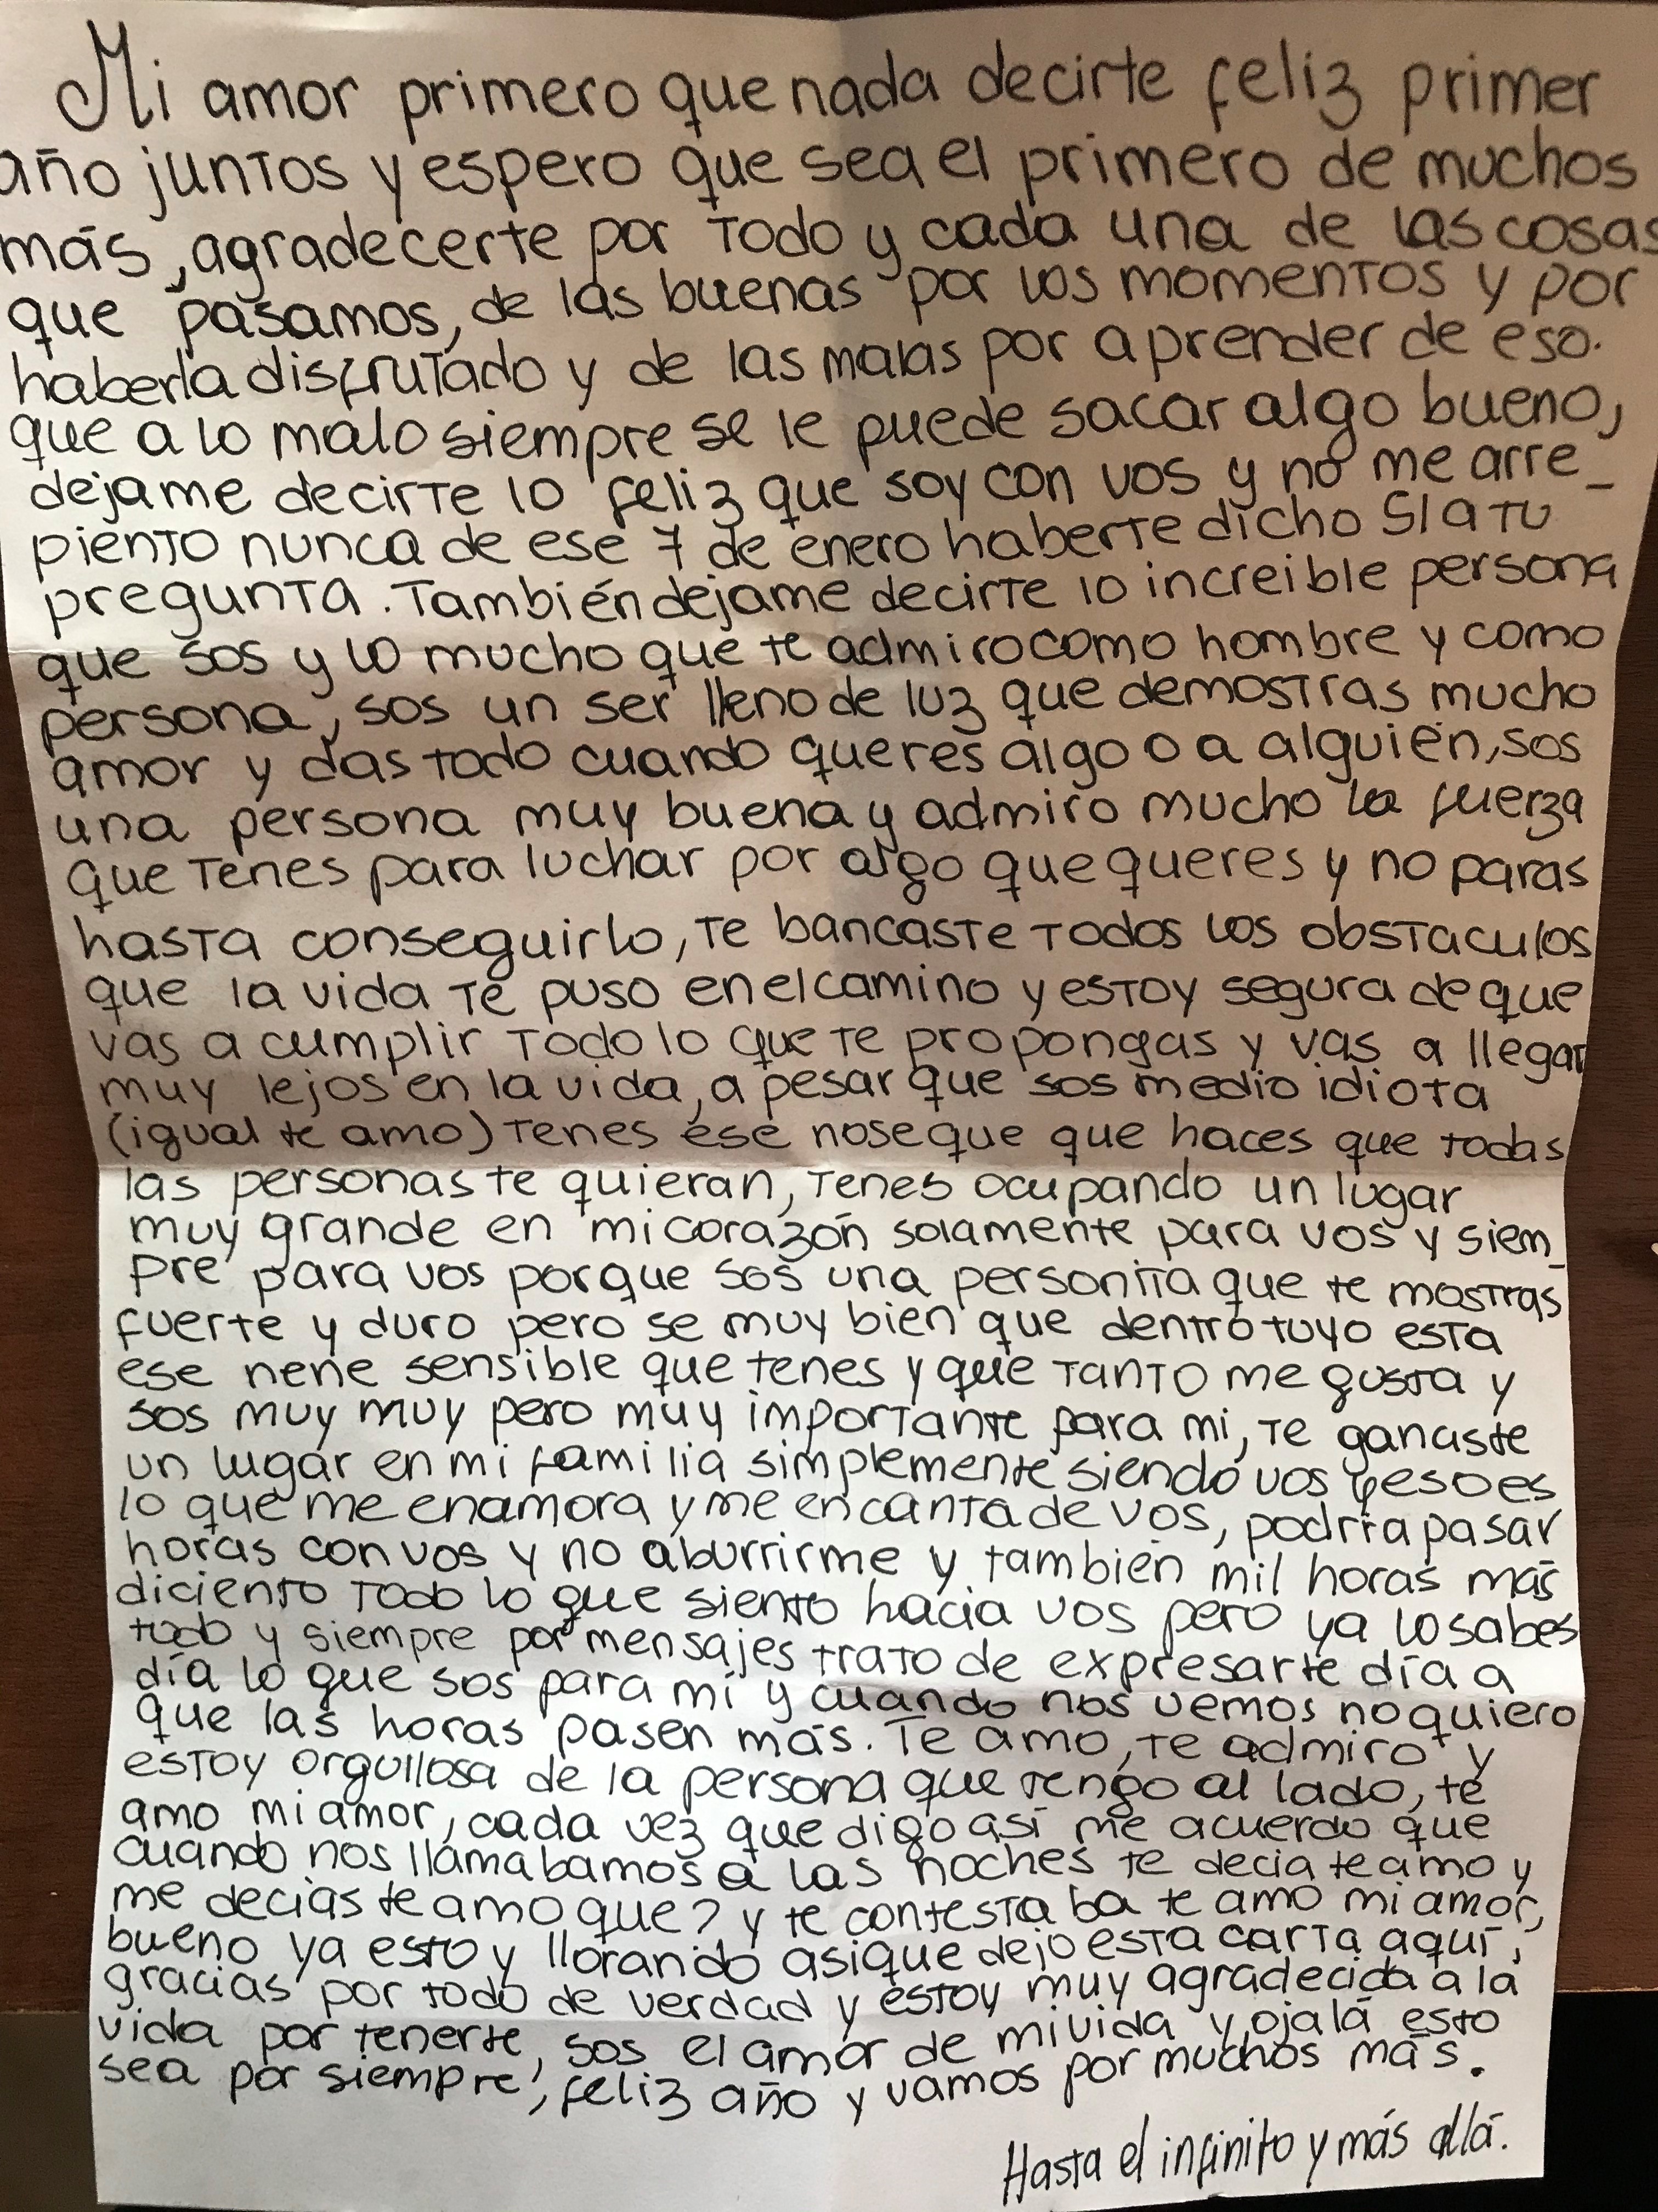 Mi amor primero que nada decirte feliz primer
año juntos y espero que sea el primero de muchos
más, agradecerte por todo y cada una de las cosas
que pasamos, de las buenas por los momentos y por
haberla disfrutado y de las malas por aprender de eso.
que a lo malo siempre se le puede sacar algo bueno,
dejame decirte lo feliz que soy con vos y no me arre_
piento nunca de ese 7 de enero haberte dicho SI a tu
pregunta. También dejame decirte lo increible persona
que sos y lo mucho que te admiro como hombre y como
persona, sos un ser lleno de luz que demostras mucho
amor y das todo cuando queres algo o a alguién, sos
una persona muy buena y admiro mucho la fuerza
que tenes para luchar por algo que queres y no paras
hasta conseguirlo, te bancaste todos los obstaculos
que la vida te puso en el camino y estoy segura de que
vas a cumplir todo lo que te propongas y vas a llegar
muy lejos en la vida, a pesar que sos medio idiota
(igual te amo) tenes ese noseque que haces que todas
las personas te quieran, tenes ocupando un lugar
muy grande en mi corazón solamente para vos y siem_
pre para vos porque sos una personita que te mostras
fuerte y duro pero se muy bien que dentro tuyo esta
ese nene sensible que tenes y que tanto me gusta y
sos muy muy pero muy importante para mi, te ganaste
un lugar en mi familia simplemente siendo vos y eso es
lo que me enamora y me encanta de vos, podría pasar
horas con vos y no aburrirme y también mil horas más
diciento todo lo que siento hacia vos pero ya lo sabes
todo y siempre por mensajes trato de expresarte día a
día lo que sos para mí y cuando nos vemos no quiero
que las horas pasen más. Te amo, te admiro y
estoy orgullosa de la persona que tengo al lado, te
amo mi amor, cada vez que digo así me acuerdo que
cuando nos llamabamos a las noches te decia te amo y
me decias te amo que? y te contestaba te amo mi amor,
bueno ya estoy llorando asique dejo esta carta aquí,
gracias por todo de verdad y estoy muy agradecida a la
vida por tenerte, sos el amor de mi vida y ojalá esto
sea por siempre, feliz año y vamos por muchos más.
Hasta el infinito y más allá.